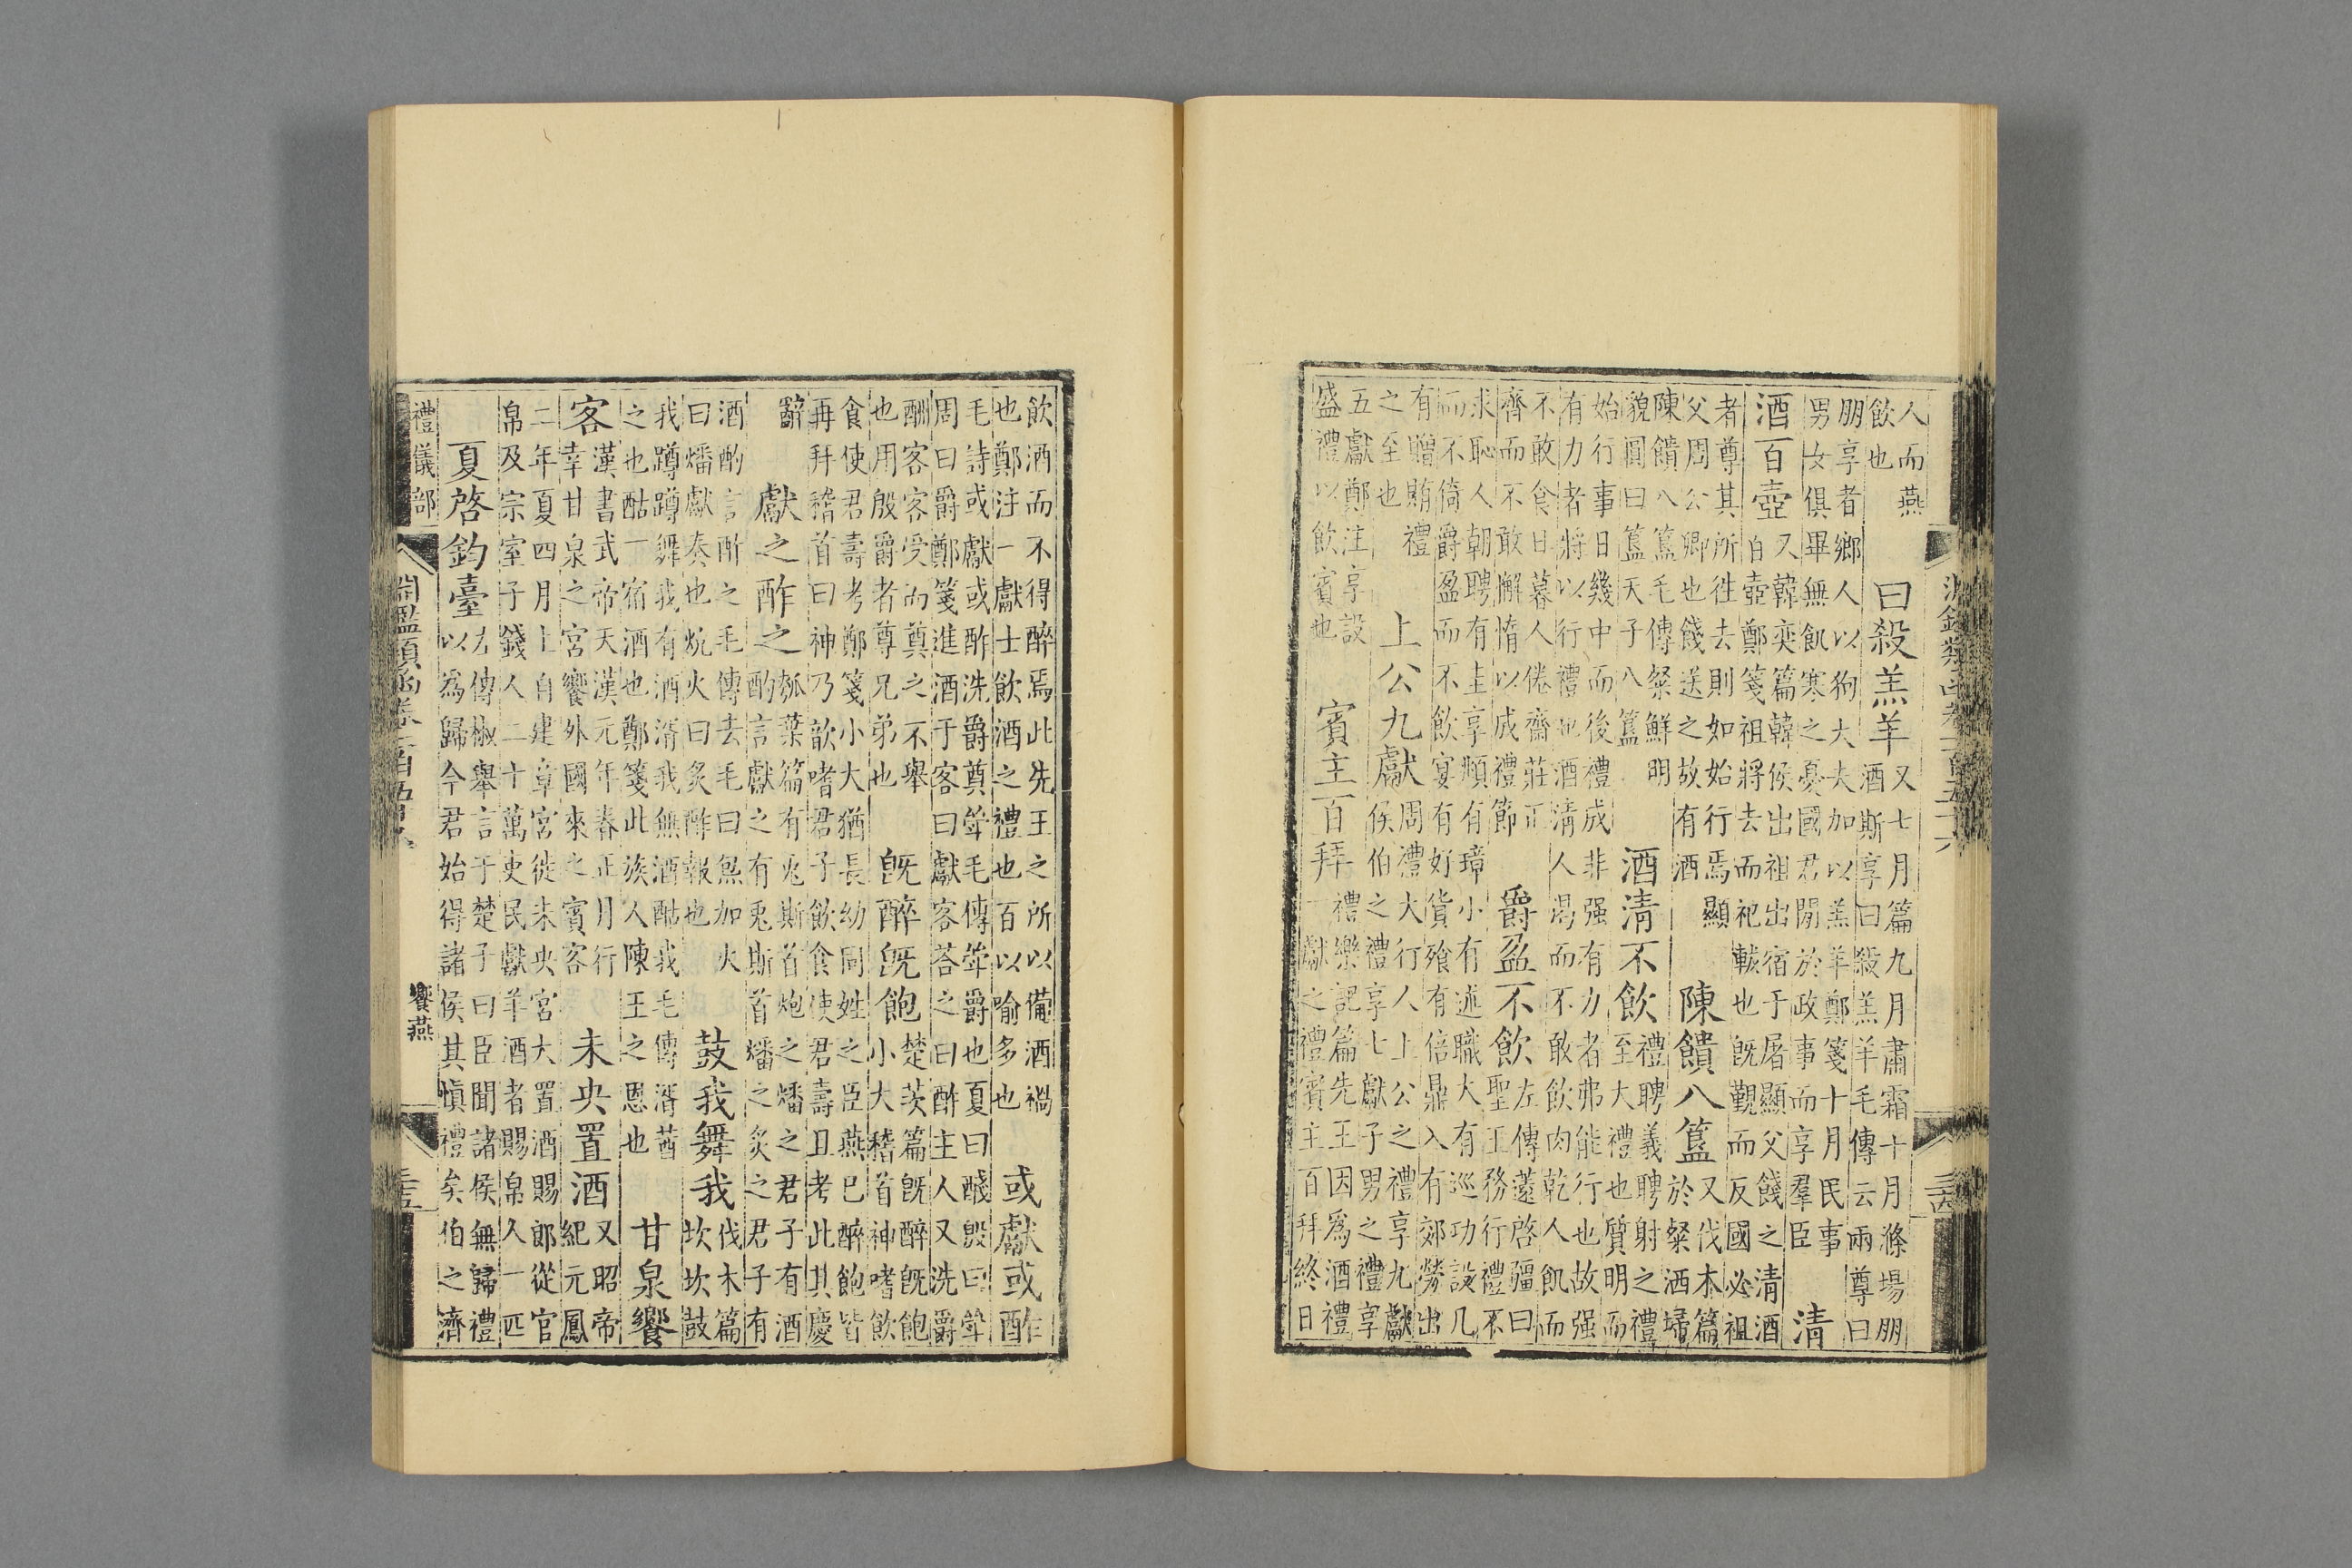 人而燕
飲也
曰殺羔羊
又七月篇九月肅霜十月滌場朋
酒斯享曰殺羔羊毛傳云兩尊曰
朋享者鄉人以狗大夫加以羔羊鄭箋十月民事
男女俱畢無飢寒之憂國君閒於政事而享羣臣
清
酒百壺
又韓奕篇韓侯出祖出宿于屠顯父餞之清酒
百壺鄭箋祖將去而祀軷也既覲而反國必祖
者尊其所徃去則如始行焉顯
父周公卿也餞送之故有酒
陳饋八簋
又伐木篇
於粲洒埽
陳饋八簋毛傳粲鮮明
貌圓曰簋天子八簋
酒清不飲
禮聘義聘射之禮
至大禮也質明而
始行事日幾中而後禮成非强有力者弗能行也故强
有力者將以行禮也酒清人渴而不敢飲肉乾人飢而
不敢食日暮人倦齋莊正
齊而不敢懈惰以成禮節
爵盈不飲
左傳薳啓彊曰
聖王務行禮不
求恥人朝聘有圭享頫有璋小有述職大有巡功設几
而不倚爵盈而不飲宴有好貨飧有倍鼎入有郊勞出
有贈賄禮
之至也
上公九獻
周禮大行人上公之禮享九獻
侯伯之禮享七獻子男之禮享
五獻鄭注享設
盛禮以飲賓也
賓主百拜
禮樂記篇先王因爲酒禮
一獻之禮賓主百拜終日
飲酒而不得醉焉此先王之所以備酒禍
也鄭注一獻士飲酒之禮也百以喻多也
或獻或酢
毛詩或獻或酢洗爵奠斝毛傳斝爵也夏曰醆殷曰斝
周曰爵鄭箋進酒于客曰獻客荅之曰酢主人又洗爵
酬客客受而奠之不舉
也用殷爵者尊兄弟也
既醉既飽
楚茨篇既醉既飽
小大稽首神嗜飲
食使君壽考鄭箋小大猶長幼同姓之臣燕已醉飽皆
再拜稽首曰神乃歆嗜君子飲食使君壽且考此其慶
辭
獻之酢之
瓠葉篇有兎斯首炮之燔之君子有酒
酌言獻之有兎斯首燔之炙之君子有
酒酌言酢之毛傳去毛曰炰加火
曰燔獻奏也炕火曰炙酢報也
鼓我舞我
伐木篇
坎坎鼓
我蹲蹲舞我有酒湑我無酒酤我毛傳湑莤
之也酤一宿酒也鄭箋此族人陳王之恩也
甘泉饗
客
漢書武帝天漢元年春正月行
幸甘泉之宮饗外國來之賓客
未央置酒
又昭帝
紀元鳳
二年夏四月上自建章宮徙未央宮大置酒賜郎從官
帛及宗室子錢人二十萬吏民獻羊酒者賜帛人一匹
夏啓鈞臺
左傳椒舉言于楚子曰臣聞諸侯無歸禮
以為歸今君始得諸侯其慎禮矣伯之濟
禮儀部
饗燕
三十五